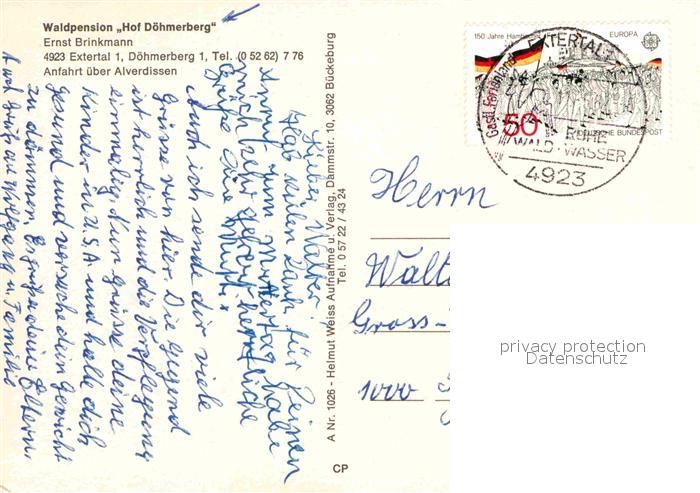 Waldpension „Hof Döhmerberg"
Ernst Brinkmann
4923 Extertal 1, Döhmerberg 1, Tel. (0 52 62) 7 76
Anfahrt über Alverdissen
Lieber Walter!
Hab vielen Dank für Deinen
Anruf zum Muttertag habe
mich sehr gefreut herzliche
Grüße Deine
Auch ich sende dir viele
Grüsse von hier. Die Gegend
ist herrlich und die Verpflegung
einmalig. Nun grüsse deine
Kinder in U.S.A. und halte dich
gesund und versuche dein Gewicht
zu dämmen. Es grüßt deine Eltern
Auch Gruß auf Wolfgang u. Familie
A Nr. 1026 - Helmut Weiss Aufnahme u. Verlag, Dammstr. 10, 3062 Bückeburg
Tel. 0 57 22 / 43 24
CP
150 Jahre Hambacher
EUROPA
50
DEUTSCHE BUNDESPOST
EXTERTAL 1
RUHE
WALD · WASSER
4923
Herrn
Walt
Gross-
1000
privacy protection
Datenschutz